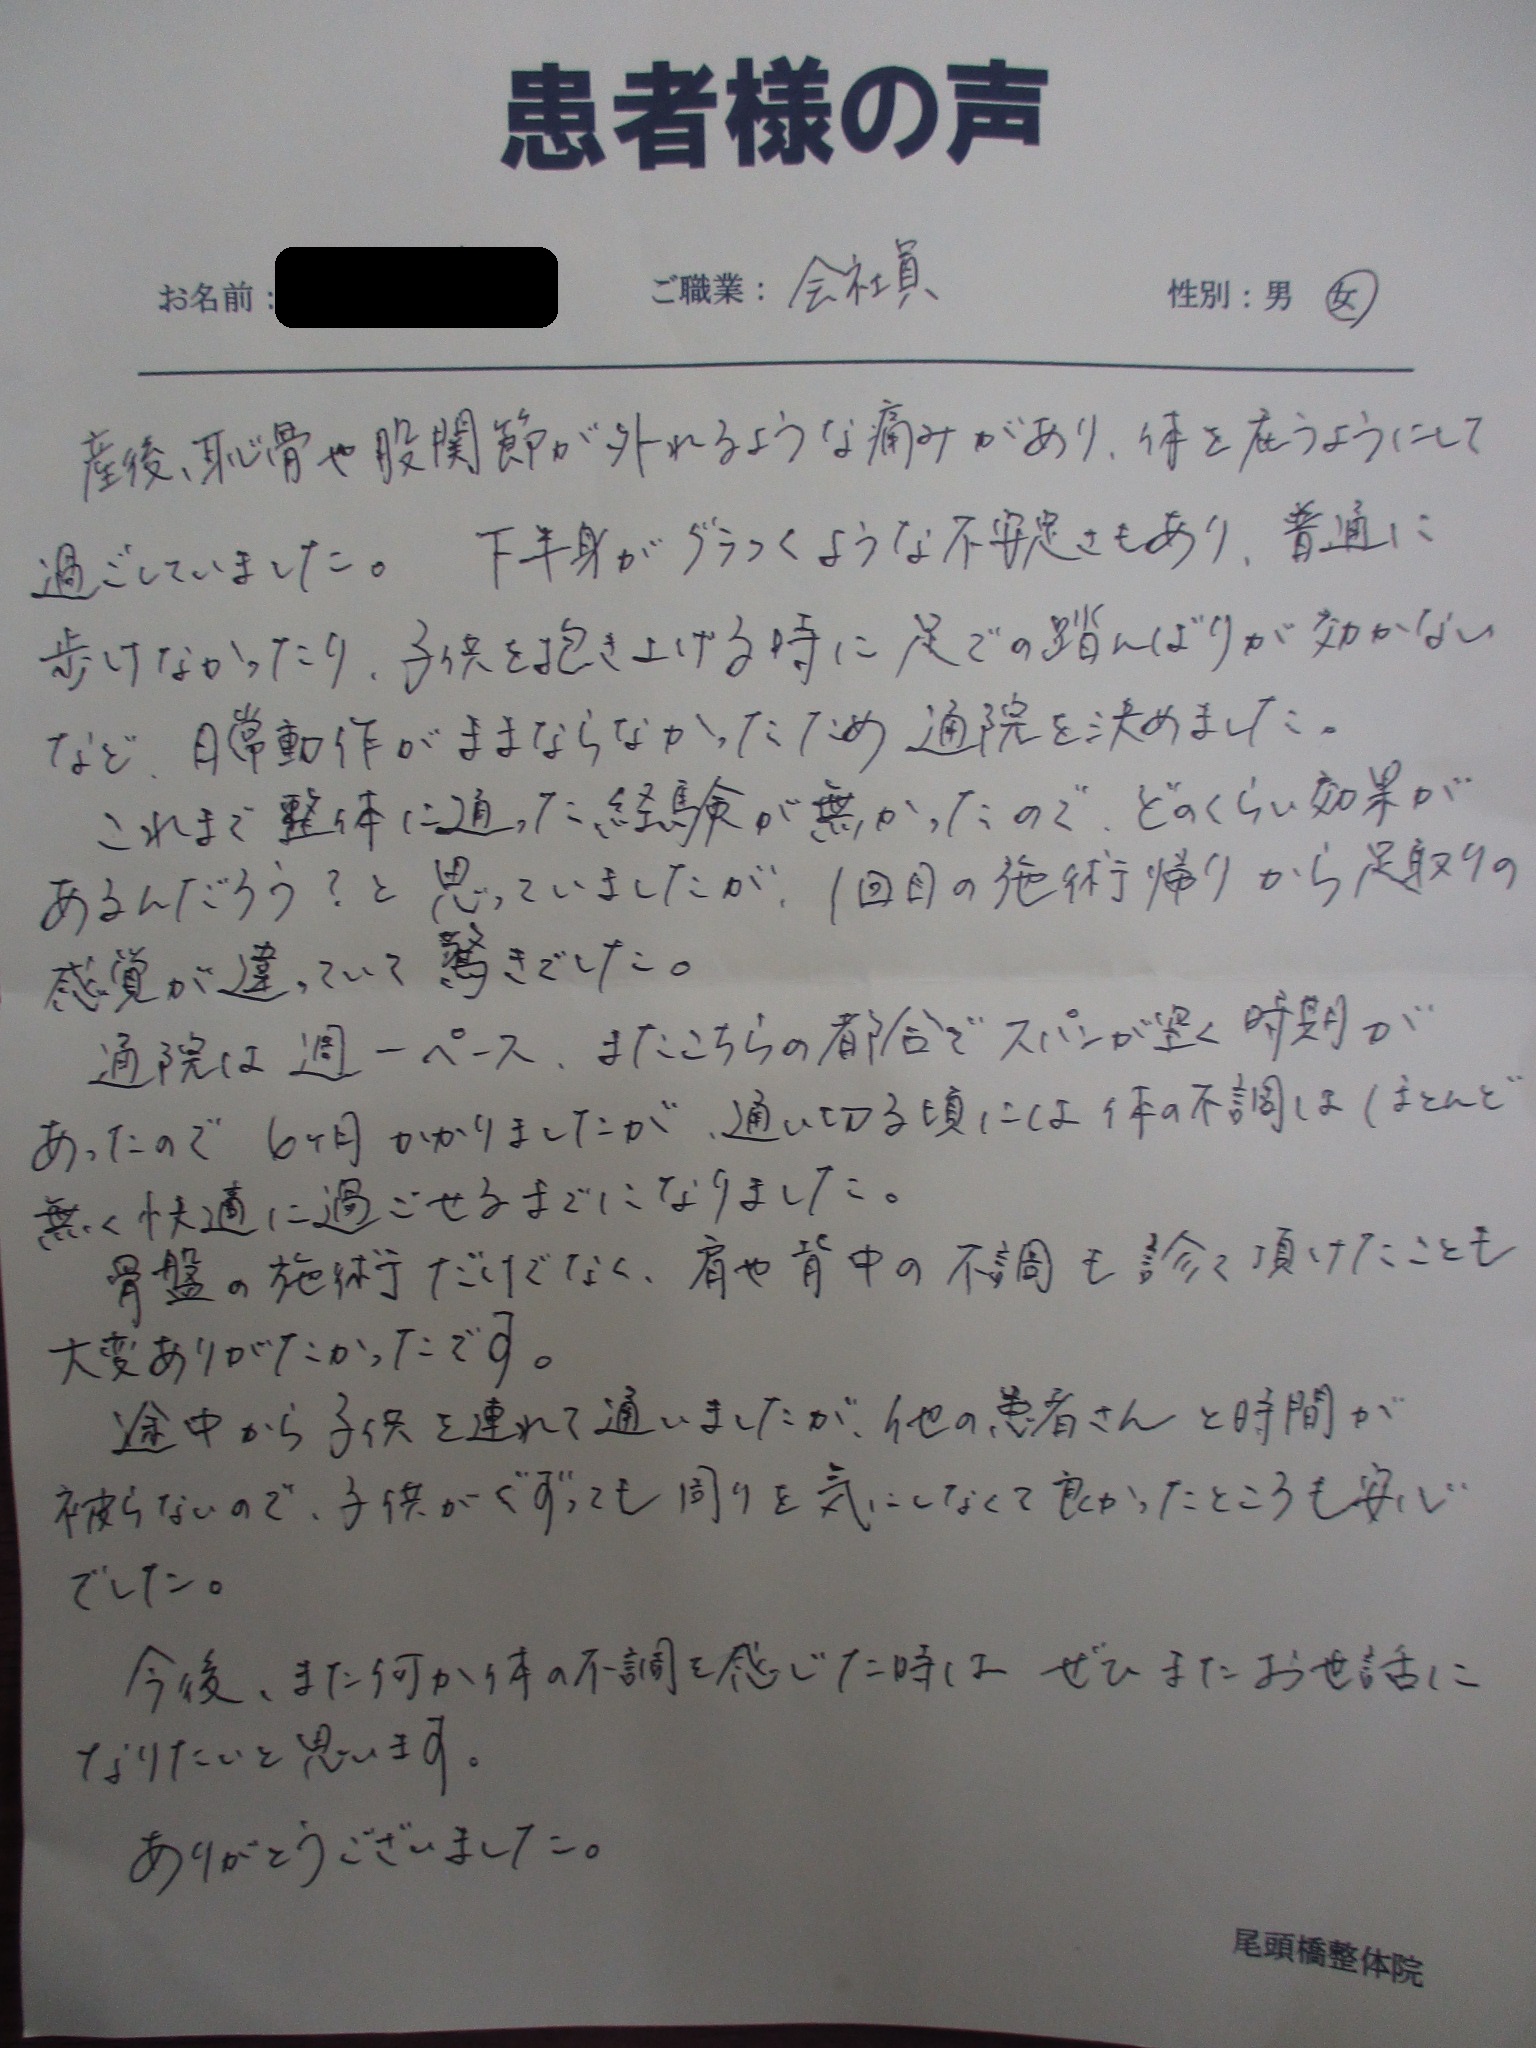 患者様の声
お名前: ご職業: 会社員 性別: 男 女
産後、恥骨や股関節が外れるような痛みがあり、体を庇うようにして
過ごしていました。 下半身がグラつくような不安定さもあり、普通に
歩けなかったり、子供を抱き上げる時に足での踏んばりが効かない
など、日常動作がままならなかったため通院を決めました。
これまで整体に通った経験が無かったので、どのくらい効果が
あるんだろう?と思っていましたが、1回目の施術帰りから足取りの
感覚が違っていて驚きでした。
通院は週一ペース、またこちらの都合でスパンが空く時期が
あったので6ヶ月かかりましたが、通い切る頃には体の不調はほとんど
無く快適に過ごせるまでになりました。
骨盤の施術だけでなく、肩や背中の不調も診て頂けたことも
大変ありがたかったです。
途中から子供を連れて通いましたが、他の患者さんと時間が
被らないので、子供がぐずっても周りを気にしなくて良かったところも安心
でした。
今後、また何か体の不調を感じた時はぜひまたお世話に
なりたいと思います。
ありがとうございました。
尾頭橋整体院